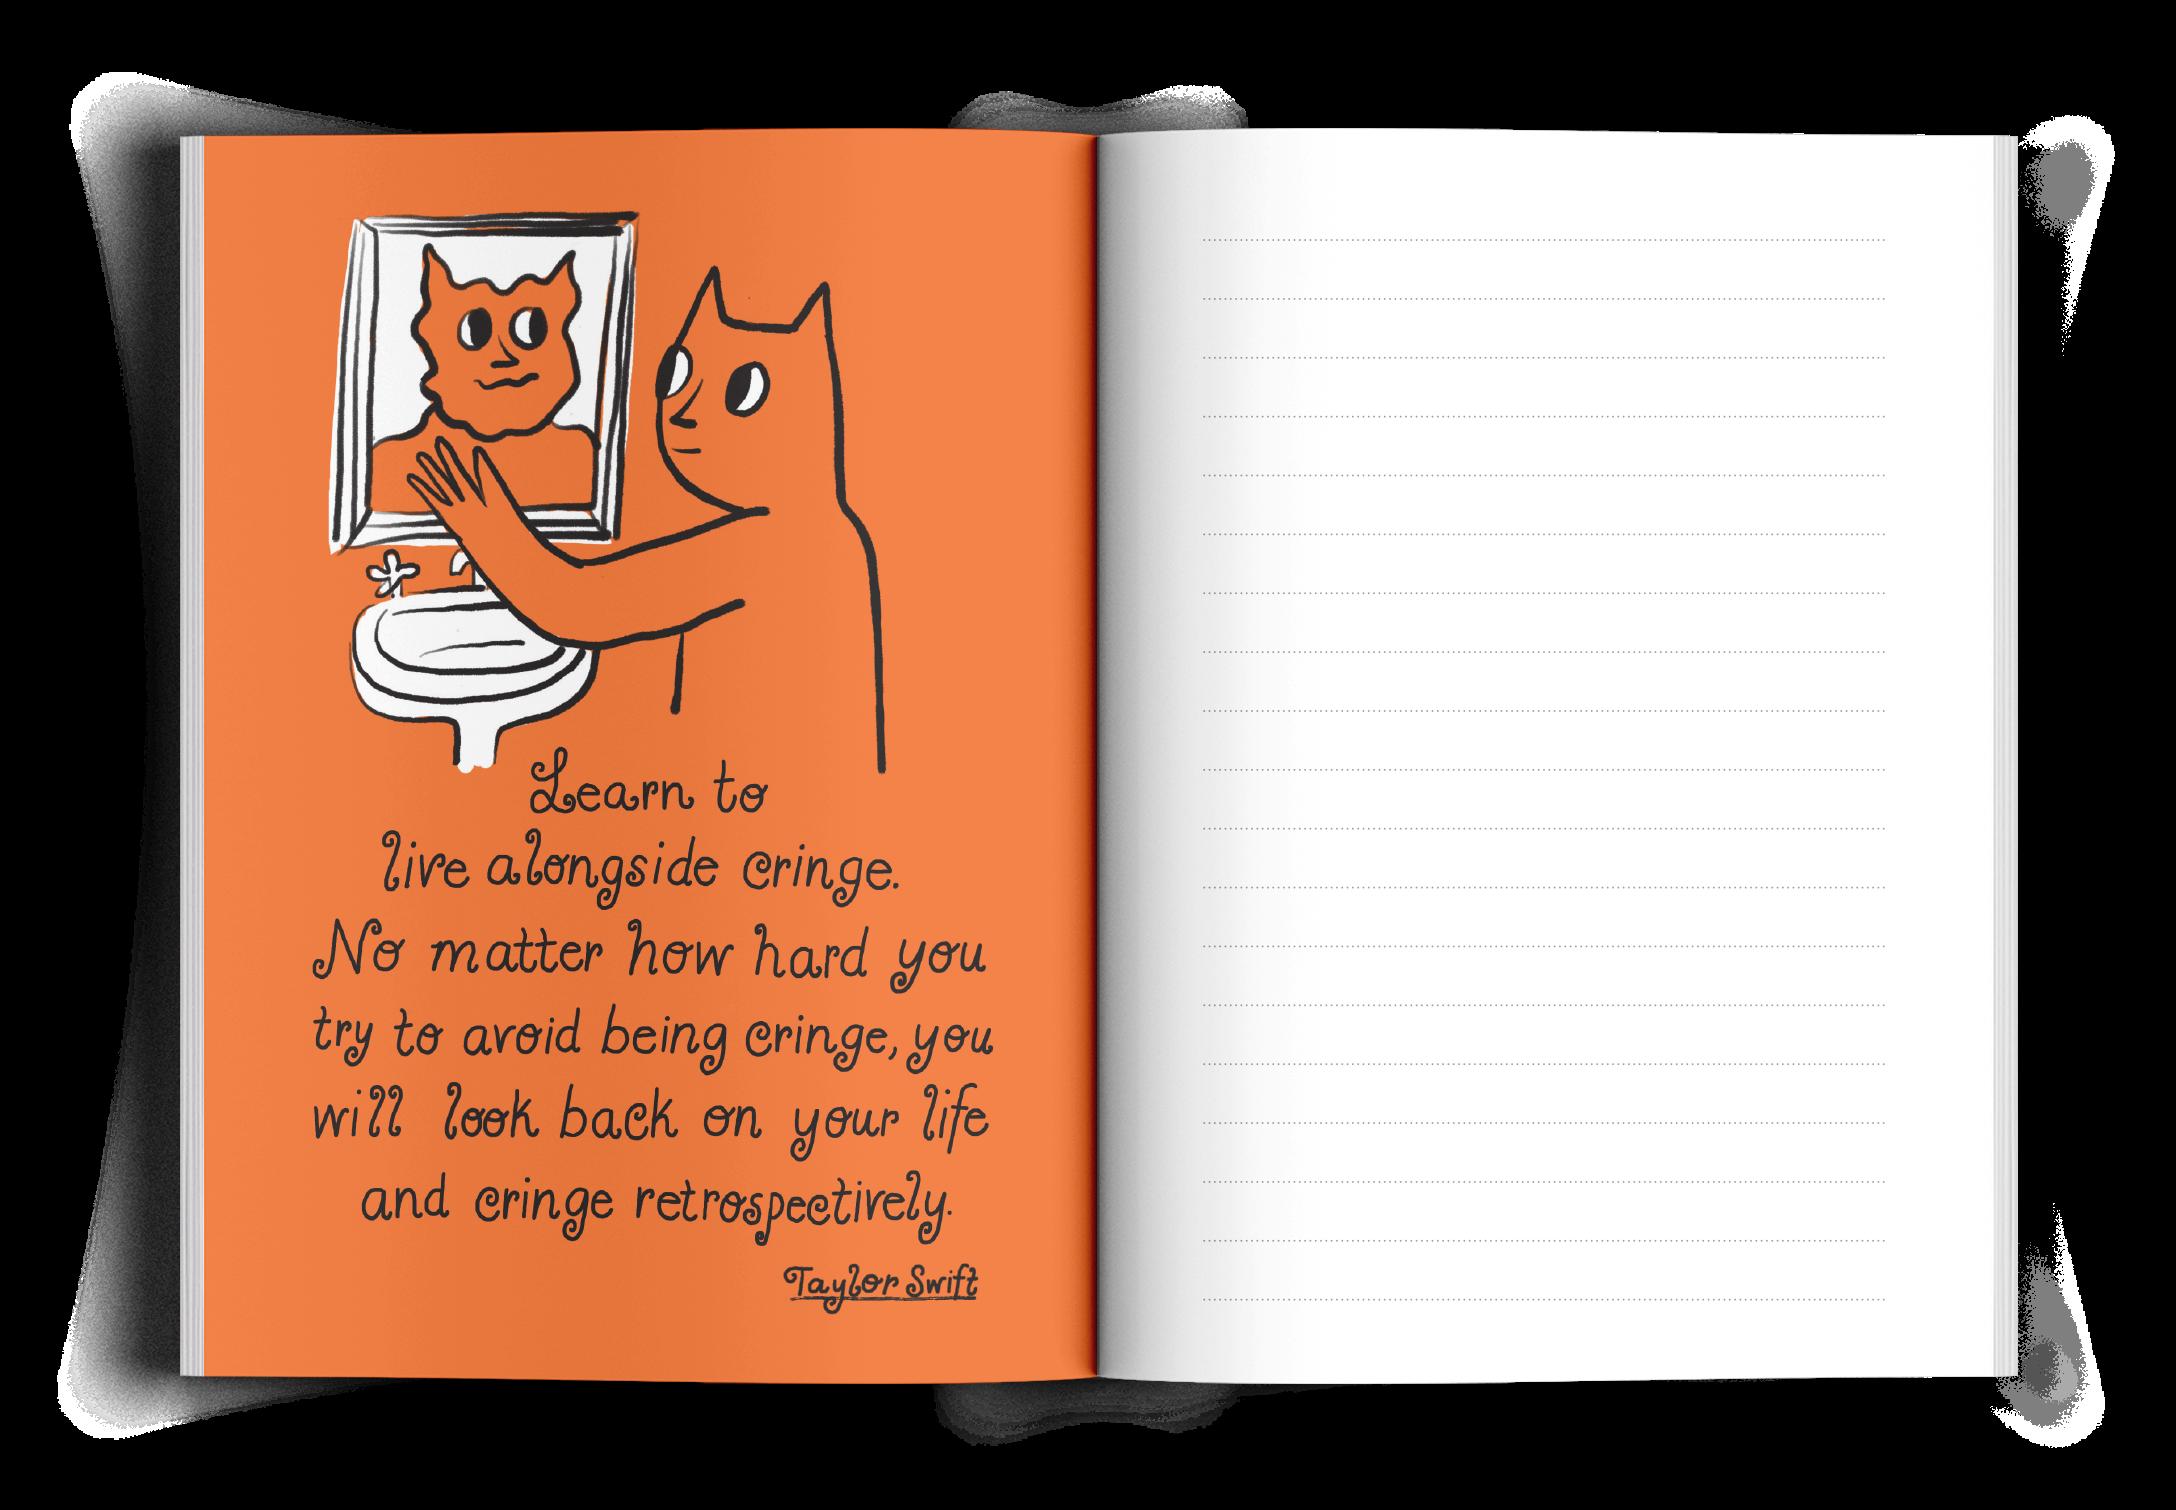 Learn to
live alongside cringe.
No matter how hard you
try to avoid being cringe, you
will look back on your life
and cringe retrospectively.
Taylor Swift